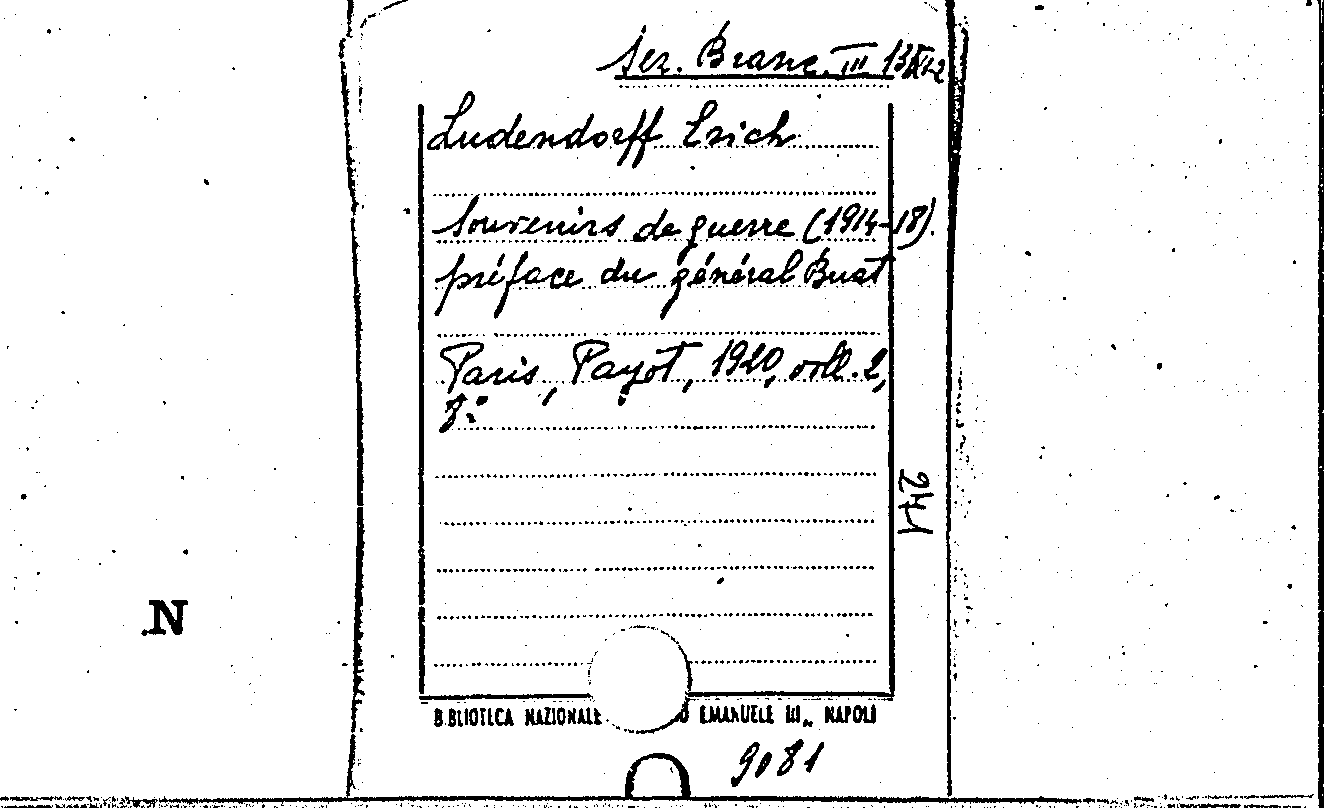 Sez. Branc. III 13
Ludendorff Erich
Souvenirs de guerre (1914-18).
préface du général Buat
Paris, Payot, 1920, voll. 2,
8°
241
N
BIBLIOTECA NAZIONALE EMANUELE III„ NAPOLI
9081